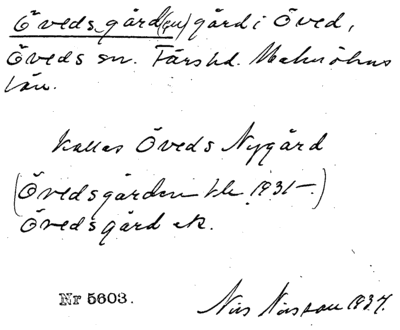 Övedsgård(en) gård i Öved,
Öveds sn. Färs hd. Malmöhus
län.
Kallas Öveds Nygård
(Övedsgården tlr 1931-.)
Övedsgård ek.
Nr 5603. Nils Nilsson 1934.